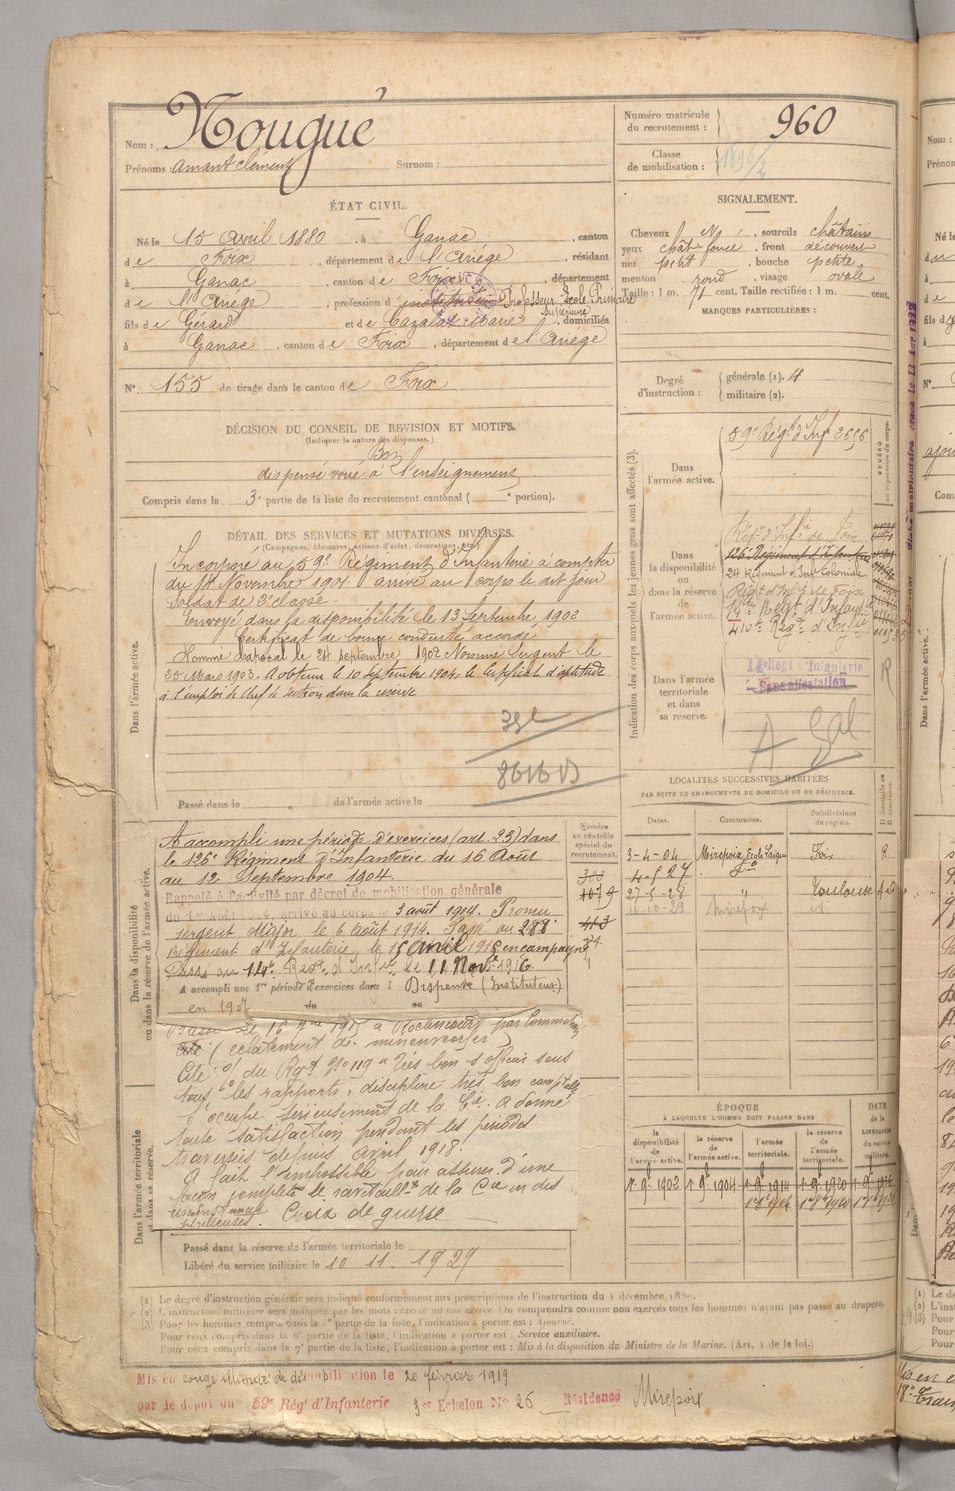 Nom : Nougué
Prénoms : Amant Clément Surnom :
Numéro matricule du recrutement : 960
Classe de mobilisation :
ÉTAT CIVIL.
Né le 15 Avril 1880, à Ganac, canton
de Foix, département de l'Ariège, résidant
à Ganac, canton de Foix, département
de l'Ariège, profession d' instituteur Professeur Ecole Primaire Supérieure
fils de Gérard et de Cazalat Marie, domiciliés
à Ganac, canton de Foix, département de l'Ariège
N° 155 de tirage dans le canton de Foix
SIGNALEMENT.
Cheveux N, sourcils châtains
yeux chât foncé, front découvert
nez petit, bouche petite
menton rond, visage ovale
Taille : 1 m. 71 cent. Taille rectifiée : 1 m. cent.
MARQUES PARTICULIÈRES :
Degré d'instruction : générale (1). 4
militaire (2).
DÉCISION DU CONSEIL DE REVISION ET MOTIFS.
(Indiquer la nature des dispenses.)
Bon
dispensé voué à l'enseignement
Compris dans le 3e partie de la liste du recrutement cantonal ( e portion).
DÉTAIL DES SERVICES ET MUTATIONS DIVERSES.
(Campagnes, blessures, actions d'éclat, décorations, etc.)
Incorporé au 59e Régiment d'Infanterie à compter
du 14 Novembre 1901 arrivé au corps le dit jour
Soldat de 2e classe.
Envoyé dans la disponibilité le 13 Septembre 1902
Certificat de bonne conduite accordé
Nommé Caporal le 24 septembre 1902 Nommé Sergent le
20 Mars 1903. A obtenu le 10 septembre 1904, le certificat d'aptitude
à l'emploi de Chef de section dans la réserve
Passé dans la de l'armée active le
Dans l'armée active.
Indication des corps auxquels les jeunes gens sont affectés (3).
Dans l'armée active.
59e Régt d'Inf
Dans la disponibilité ou dans la réserve de l'armée active.
Régt d'Infie de Foix
126e Régiment d'Infanterie
24 Régiment d'Inf Coloniale
Régt d'Infie de Foix
14e Régt d'Infanterie
Dans l'armée territoriale et dans sa réserve.
Régt d'Infanterie
Sans affectation
NUMÉRO
LOCALITÉS SUCCESSIVES HABITÉES
PAR SUITE DE CHANGEMENTS DE DOMICILE OU DE RÉSIDENCE.
Dates. Communes. Subdivisions de région.
3-4-04 Mirepoix, Ecole Laïque Foix R
4-5 27 do
27-5-28 " Toulouse
16-10-29 Mirepoix
Numéro au contrôle spécial du recrutement.
A accompli une période d'exercices (art. 23) dans
le 126e Régiment d'Infanterie du 16 Août
au 12 Septembre 1904.
Rappelé à l'activité par décret de mobilisation générale
du 1er Août 1914, arrivé au corps le 3 août 1914. Promu
sergent Major le 6 Août 1914. Passé au 288e
Régiment d'Infanterie, le 15 avril 1915 en campagne
Passé au 14e Regt. d'Infie. Le 11 Novbre 1916.
A accompli une 1re période d'exercices dans l Dispensé (Instituteur)
en 1907 du au
Dans la disponibilité ou dans la réserve de l'armée active.
Blessé le 1917 à Roclincourt par commotion
(éclatement de minenwerfer)
Cité o/ du Rgt No 119 Très bon s/officier sous
tous les rapports, discipline très bon comptable
s'occupe sérieusement de la Cie. a donné
toute satisfaction pendant les périodes
traversées depuis avril 1918.
A fait l'impossible pour assurer d'une
façon complète le ravitaillt de la Cie
périlleuses. Croix de guerre
Dans l'armée territoriale et dans sa réserve.
ÉPOQUE
À LAQUELLE L'HOMME DOIT PASSER DANS
la disponibilité de l'armée active. la réserve de l'armée active. l'armée territoriale. la réserve de l'armée territoriale. DATE de la LIBÉRATION du service militaire.
1er 9bre 1902 1er 9bre 1904 1er 9bre 1914 1er 9bre 1920 1er 9bre 1926
Passé dans la réserve de l'armée territoriale le
Libéré du service militaire le 10 11 1929
(1) Le degré d'instruction générale sera indiqué conformément aux prescriptions de l'instruction du 4 décembre 1889.
(2) L'instruction militaire sera indiquée par les mots : exercé ou non exercé On comprendra comme non exercés tous les hommes n'ayant pas passé au drapeau.
(3) Pour les hommes compris dans la 5e partie de la liste, l'indication à porter est : Ajourné.
Pour ceux compris dans la 6e partie de la liste, l'indication à porter est : Service auxiliaire.
Pour ceux compris dans la 7e partie de la liste, l'indication à porter est : Mis à la disposition du Ministre de la Marine. (Art. 4 de la loi.)
Mis en congé illimité de démobilisation le 20 février 1919
par le dépôt du 59e Rég' d'Infanterie 3er Echelon No 26 Résidence Mirepoix